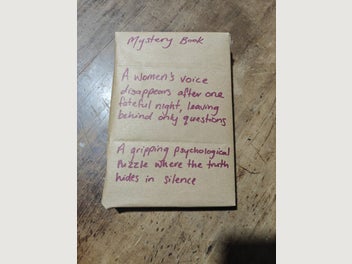 Mystery Book
A Women's voice
disappears after one
fateful night, leaving
behind only questions
A gripping psychological
Puzzle where the truth
hides in silence